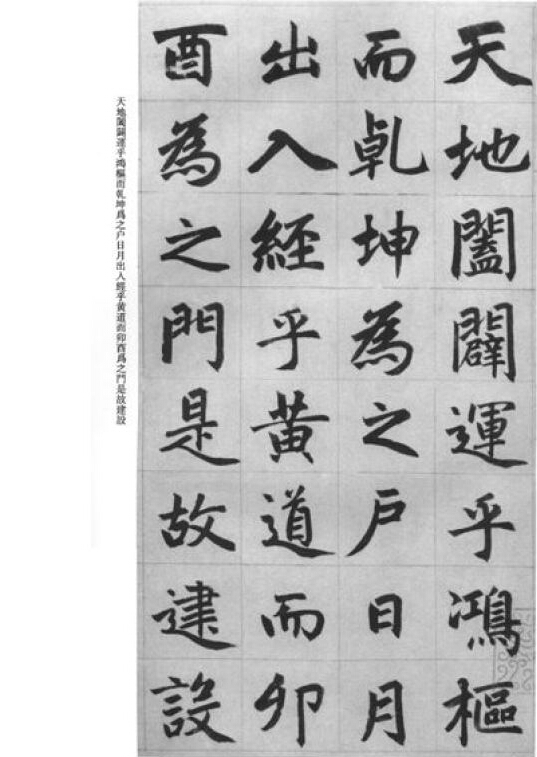 天地闔闢運乎鴻樞
而乹坤為之戶日月
出入經乎黄道而卯
酉為之門是故建設
天地闔闢運乎鴻樞而乹坤爲之户日月出入經乎黄道而卯酉爲之門是故建設